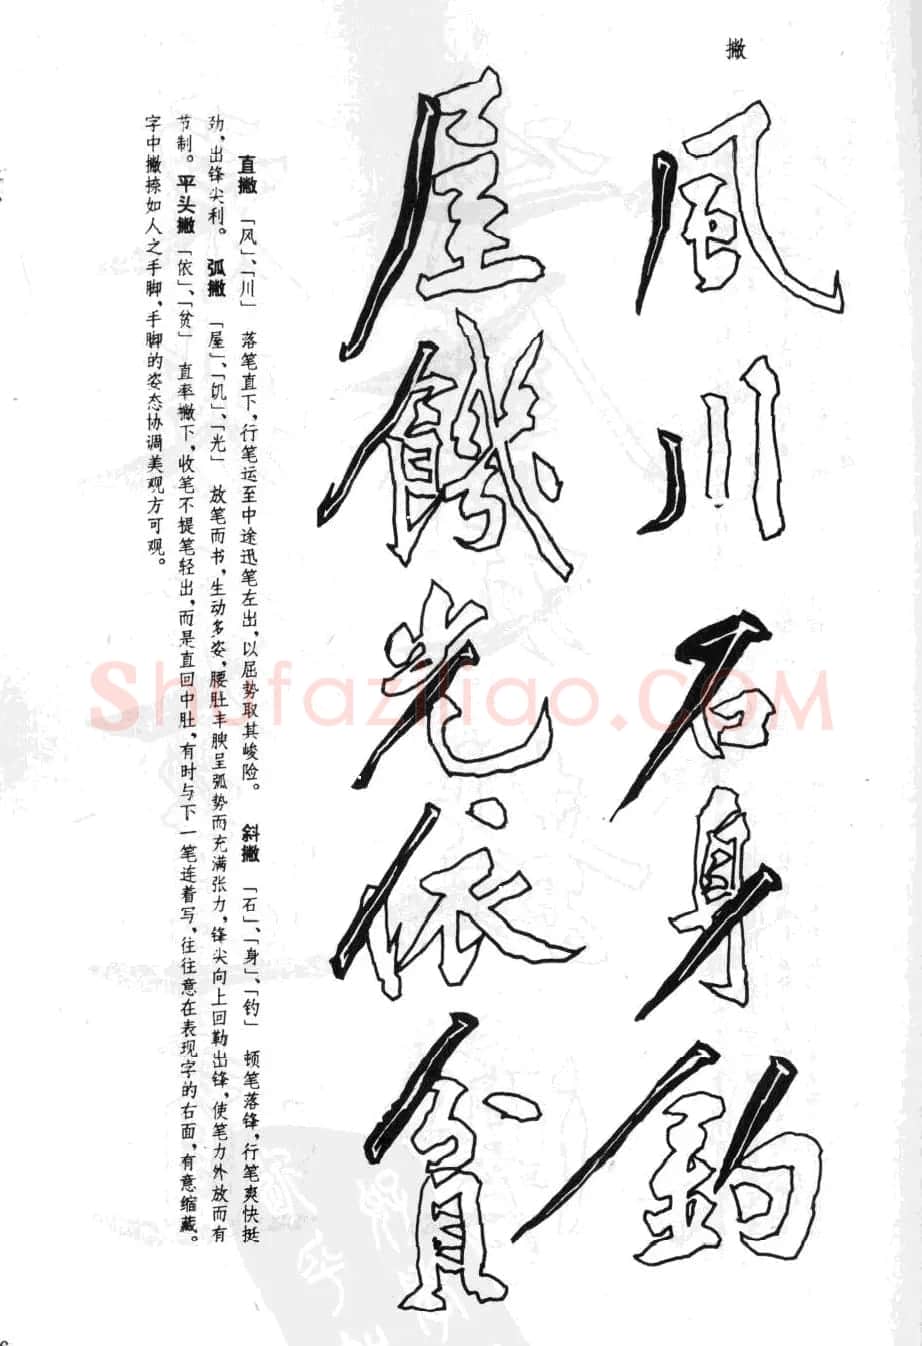 撇
风川石身钓
屋饑光依贫
直撇「风」、「川」 落笔直下，行笔运至中途迅笔左出，以屈势取其峻险。 斜撇「石」、「身」、「钓」 顿笔落锋，行笔爽快挺
劲，出锋尖利。 弧撇「屋」、「饥」、「光」 放笔而书，生动多姿，腰肚丰腴呈弧势而充满张力，锋尖向上回勒出锋，使笔力外放而有
节制。平头撇「依」、「贫」 直率撇下，收笔不提笔轻出，而是直回中肚，有时与下一笔连着写，往往意在表现字的右面，有意缩藏。
字中撇捺如人之手脚，手脚的姿态协调美观方可观。
Shufaziliao.COM